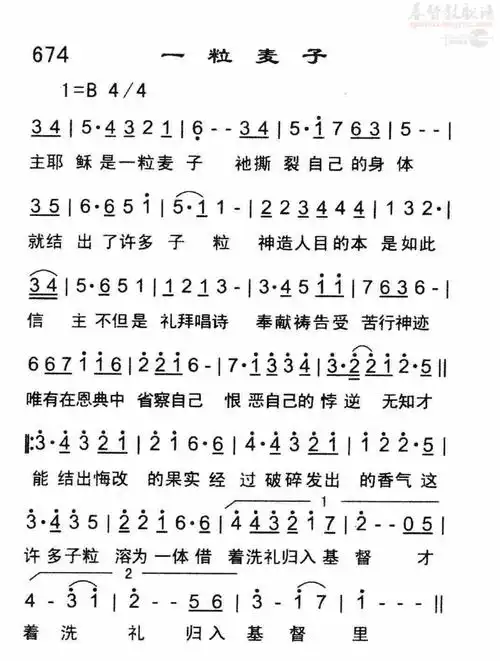 基督教歌谱
674 一粒麦子
1=B 4/4
3 4 | 5·4 3 2 1 | 6· - - 3 4 | 5·1 7 6 3 | 5 - -
主耶 稣是一粒麦 子 祂撕 裂自己的身 体
3 5 | 6·6 5 1 | 5·1 1 - | 2 2 3 4 4 4 | 1 3 2· |
就结 出了许多 子 粒 神造人目的本 是如此
3 4 | 5·6 5 1 | 1 2 1 3 - | 3·4 5 1 1 | 7 6 3 6 - |
信 主 不但是 礼拜唱诗 奉献祷告受 苦行神迹
6 6 7 1 1 6 | 2 2 1 6 - | 7·1 3 3 4 | 3·2 2 1 2·5 ||
唯有在恩典中 省察自己 恨恶自己的悖逆 无知才
|: 3·4 3 2 1 | 1 2 1 6·6 | 4·4 3 2 1 | 1 2 2·5 |
能 结出悔改 的果实经 过破碎发出 的香气这
1
3·4 3 5 | 1 2 2 1 6·2 | 4 4 3 2 1 7 | 2 - - 0 5 |
许多子粒 溶为一体借 着洗礼归入 基 督 才
2
4 - 3 1 | 2 - - 5 6 | 3 - 1 7 | 1 - - - ||
着 洗 礼 归入 基 督 里